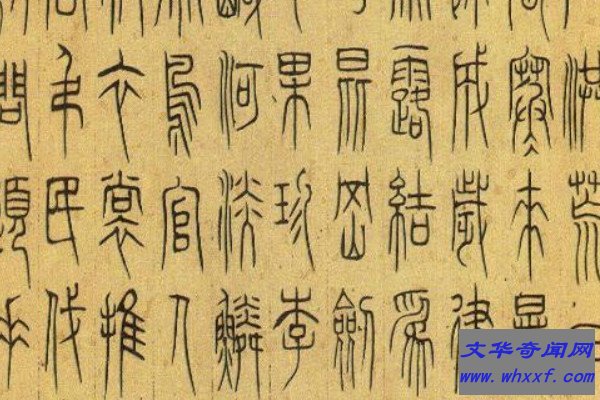 洪荒日
寒來暑
成歲律
露結為
昆岡劍
果珍李
河淡鱗
鳥官人
衣裳推
弔民伐
問道垂
文华奇闻网
www.whxxf.com